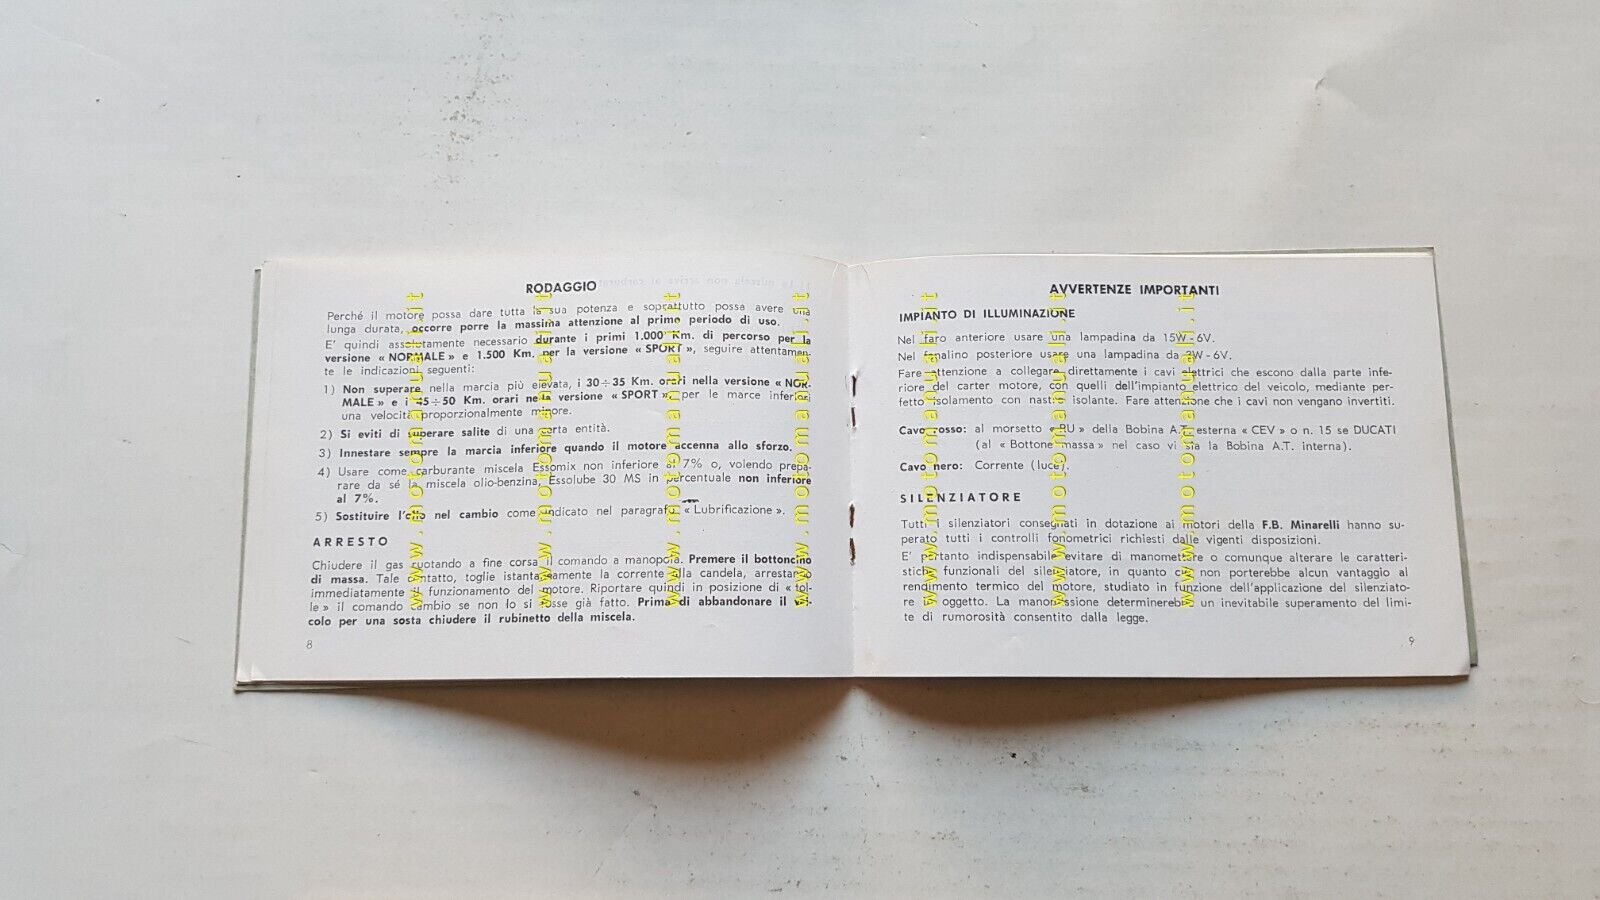 RODAGGIO
Perché il motore possa dare tutta la sua potenza e soprattutto possa avere una
lunga durata, occorre porre la massima attenzione al primo periodo di uso.
E' quindi assolutamente necessario durante i primi 1.000 Km. di percorso per la
versione « NORMALE » e 1.500 Km. per la versione « SPORT », seguire attentamen-
te le indicazioni seguenti:
1) Non superare nella marcia più elevata, i 30÷35 Km. orari nella versione « NOR-
MALE » e i 45÷50 Km. orari nella versione « SPORT », per le marce inferiori
una velocità proporzionalmente minore.
2) Si eviti di superare salite di una certa entità.
3) Innestare sempre la marcia inferiore quando il motore accenna allo sforzo.
4) Usare come carburante miscela Essomix non inferiore al 7% o, volendo prepa-
rare da sé la miscela olio-benzina, Essolube 30 MS in percentuale non inferiore
al 7%.
5) Sostituire l'olio nel cambio come indicato nel paragrafo « Lubrificazione ».
ARRESTO
Chiudere il gas ruotando a fine corsa il comando a manopola. Premere il bottoncino
di massa. Tale contatto, toglie istantaneamente la corrente alla candela, arrestando
immediatamente il funzionamento del motore. Riportare quindi in posizione di « fol-
le » il comando cambio se non lo si fosse già fatto. Prima di abbandonare il vei-
colo per una sosta chiudere il rubinetto della miscela.
8
AVVERTENZE IMPORTANTI
IMPIANTO DI ILLUMINAZIONE
Nel faro anteriore usare una lampadina da 15W - 6V.
Nel fanalino posteriore usare una lampadina da 3W - 6V.
Fare attenzione a collegare direttamente i cavi elettrici che escono dalla parte infe-
riore del carter motore, con quelli dell'impianto elettrico del veicolo, mediante per-
fetto isolamento con nastro isolante. Fare attenzione che i cavi non vengano invertiti.
Cavo rosso: al morsetto « RU » della Bobina A.T. esterna « CEV » o n. 15 se DUCATI
(al « Bottone massa » nel caso vi sia la Bobina A.T. interna).
Cavo nero: Corrente (luce).
SILENZIATORE
Tutti i silenziatori consegnati in dotazione ai motori della F.B. Minarelli hanno su-
perato tutti i controlli fonometrici richiesti dalle vigenti disposizioni.
E' pertanto indispensabile evitare di manomettere o comunque alterare le caratteri-
stiche funzionali del silenziatore, in quanto ciò non porterebbe alcun vantaggio al
rendimento termico del motore, studiato in funzione dell'applicazione del silenziato-
re in oggetto. La manomissione determinerebbe un inevitabile superamento del limi-
te di rumorosità consentito dalla legge.
9
www.motomanuali.it
www.motomanuali.it
www.motomanuali.it
www.motomanuali.it
www.motomanuali.it
www.motomanuali.it
www.motomanuali.it